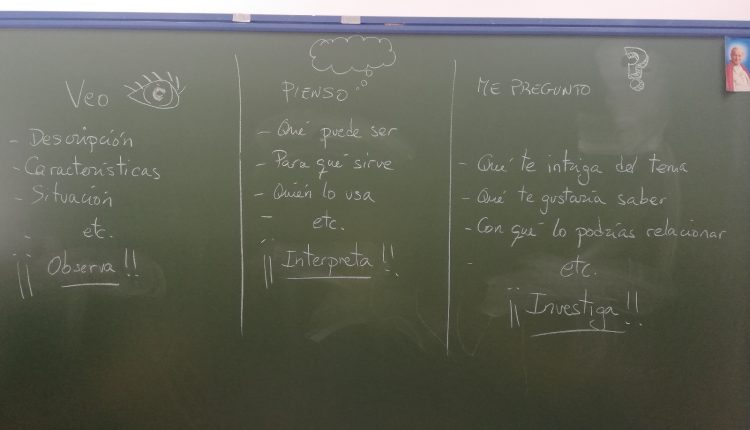 Veo
- Descripción
- Características
- Situación
- etc.
¡¡ Observa !!
PIENSO
- Qué puede ser
- Para qué sirve
- Quién lo usa
- etc.
¡¡ Interpreta !!
?
ME PREGUNTO
- Qué te intriga del tema
- Qué te gustaría saber
- Con qué lo podrías relacionar
- etc.
¡¡ Investiga !!